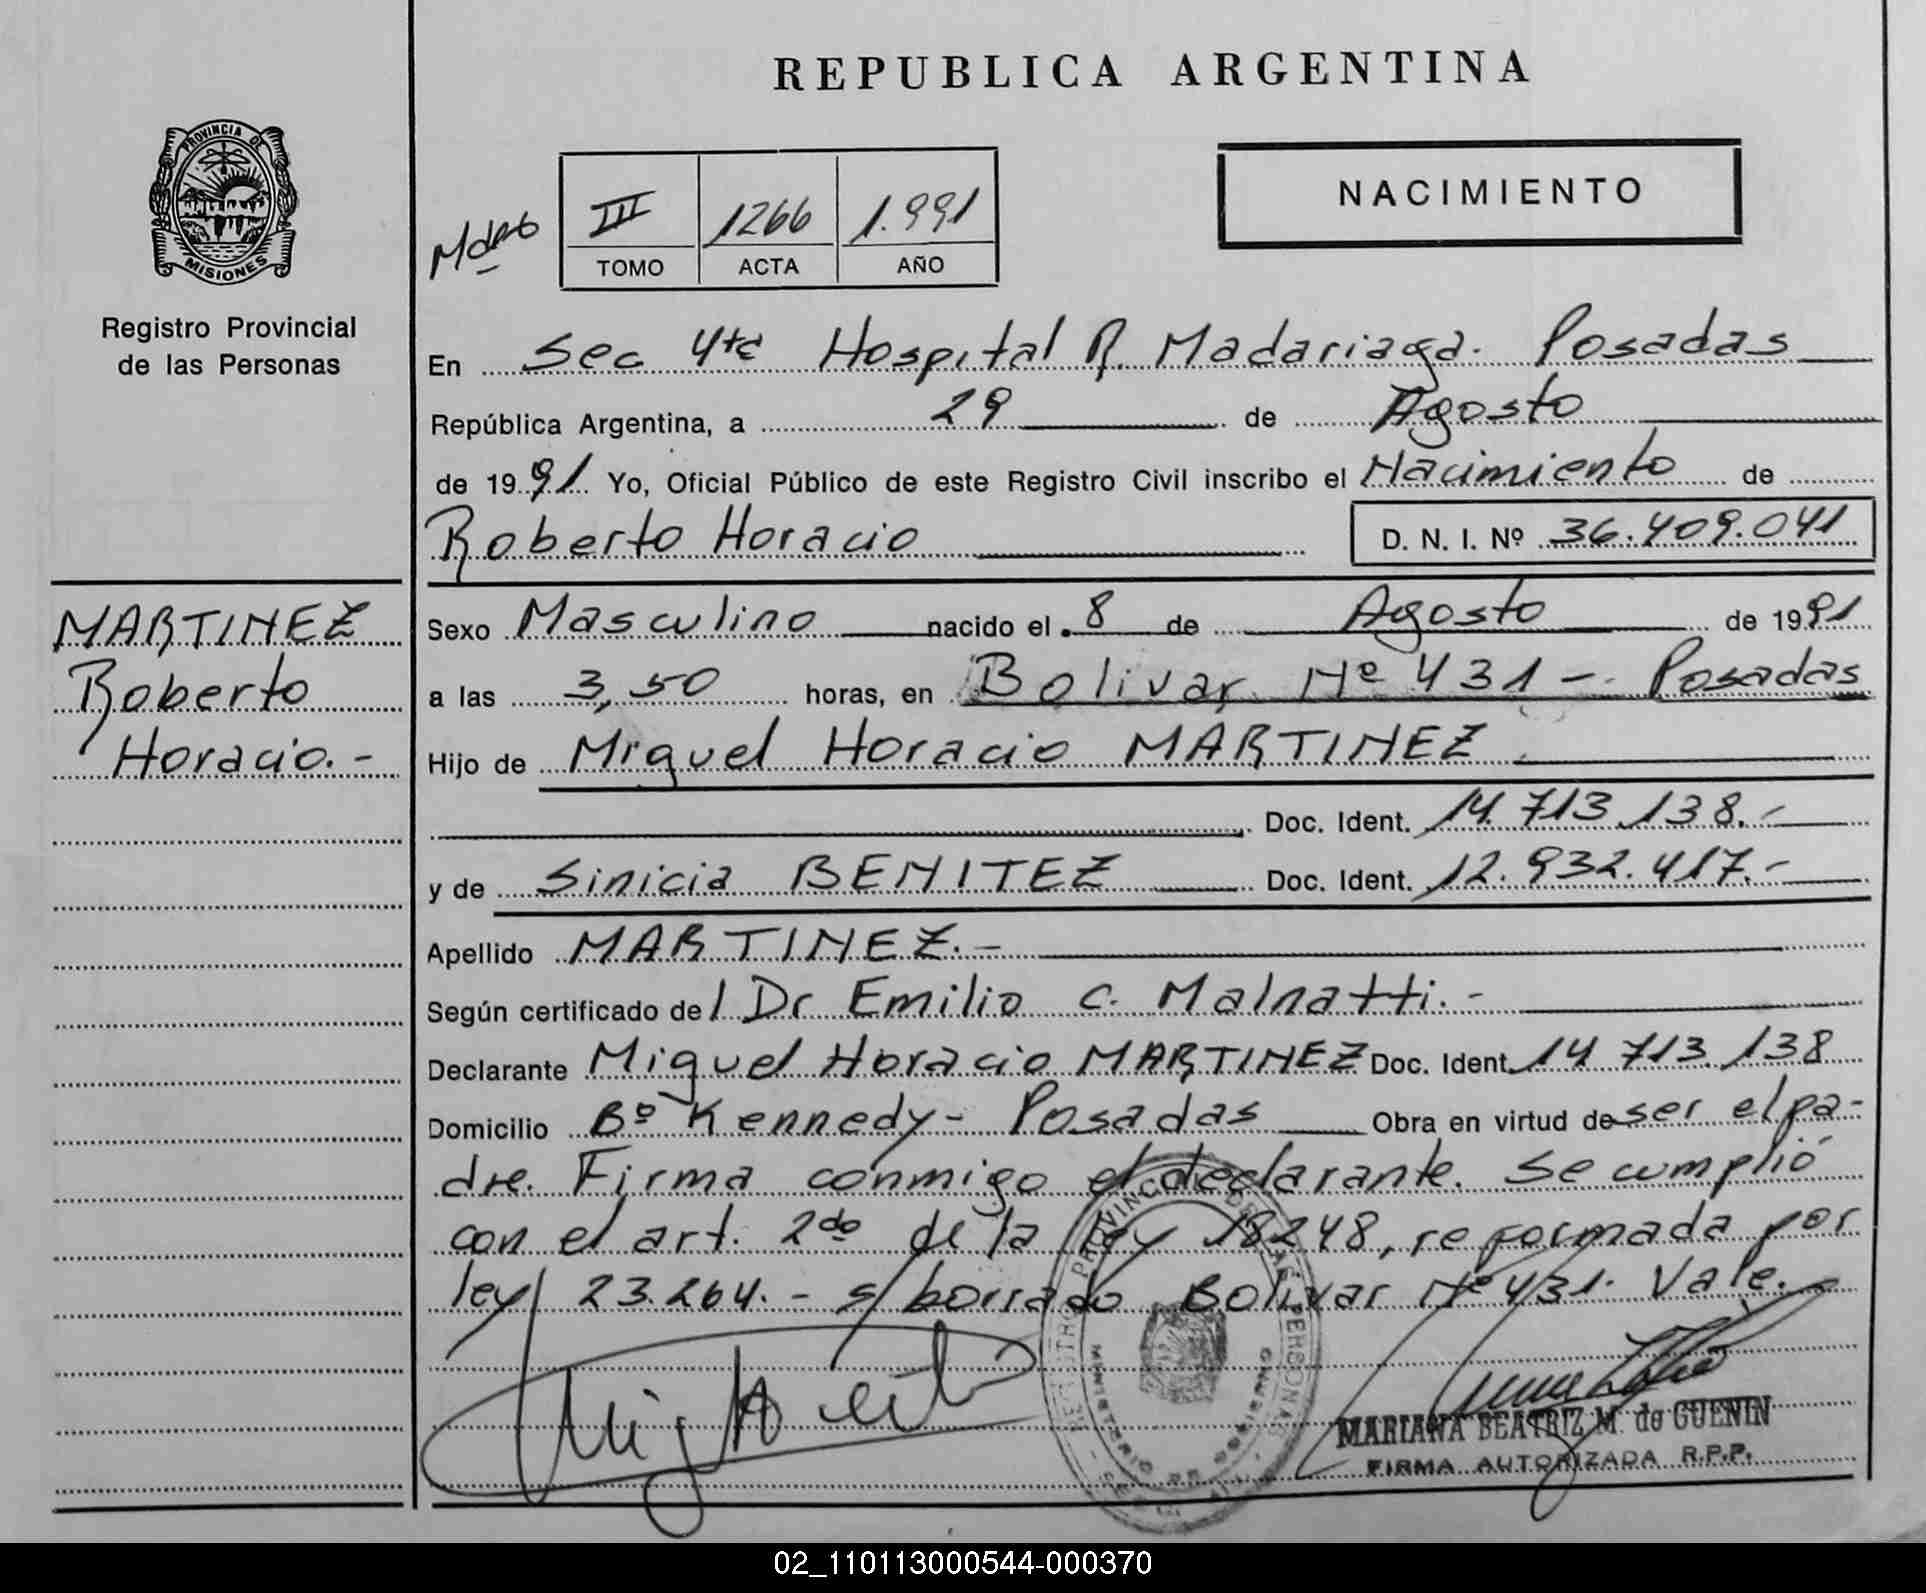 REPUBLICA ARGENTINA
PROVINCIA DE
MISIONES
Registro Provincial
de las Personas
III 1266 1.991
TOMO ACTA AÑO
NACIMIENTO
En Sec 4ta Hospital R. Madariaga. Posadas
República Argentina, a 29 de Agosto
de 1991 Yo, Oficial Público de este Registro Civil inscribo el Nacimiento de
Roberto Horacio D. N. I. Nº 36.409.041
MARTINEZ
Roberto
Horacio.-
Sexo Masculino nacido el 8 de Agosto de 1991
a las 3,50 horas, en Bolivar Nº 431 - Posadas
Hijo de Miguel Horacio MARTINEZ
Doc. Ident. 14.713.138.-
y de Sinicia BENITEZ Doc. Ident. 12.932.417.-
Apellido MARTINEZ.-
Según certificado de l Dr Emilio C. Malnatti.-
Declarante Miguel Horacio MARTINEZ Doc. Ident. 14.713.138
Domicilio Bº Kennedy - Posadas Obra en virtud de ser el pa-
dre. Firma conmigo el declarante. Se cumplió
con el art. 2do de la ley 18248, reformada por
ley 23.264. - s/borrado Bolivar Nº 431. Vale.
MARIANA BEATRIZ M. de GUENIN
FIRMA AUTORIZADA R.P.P.
02_110113000544-000370